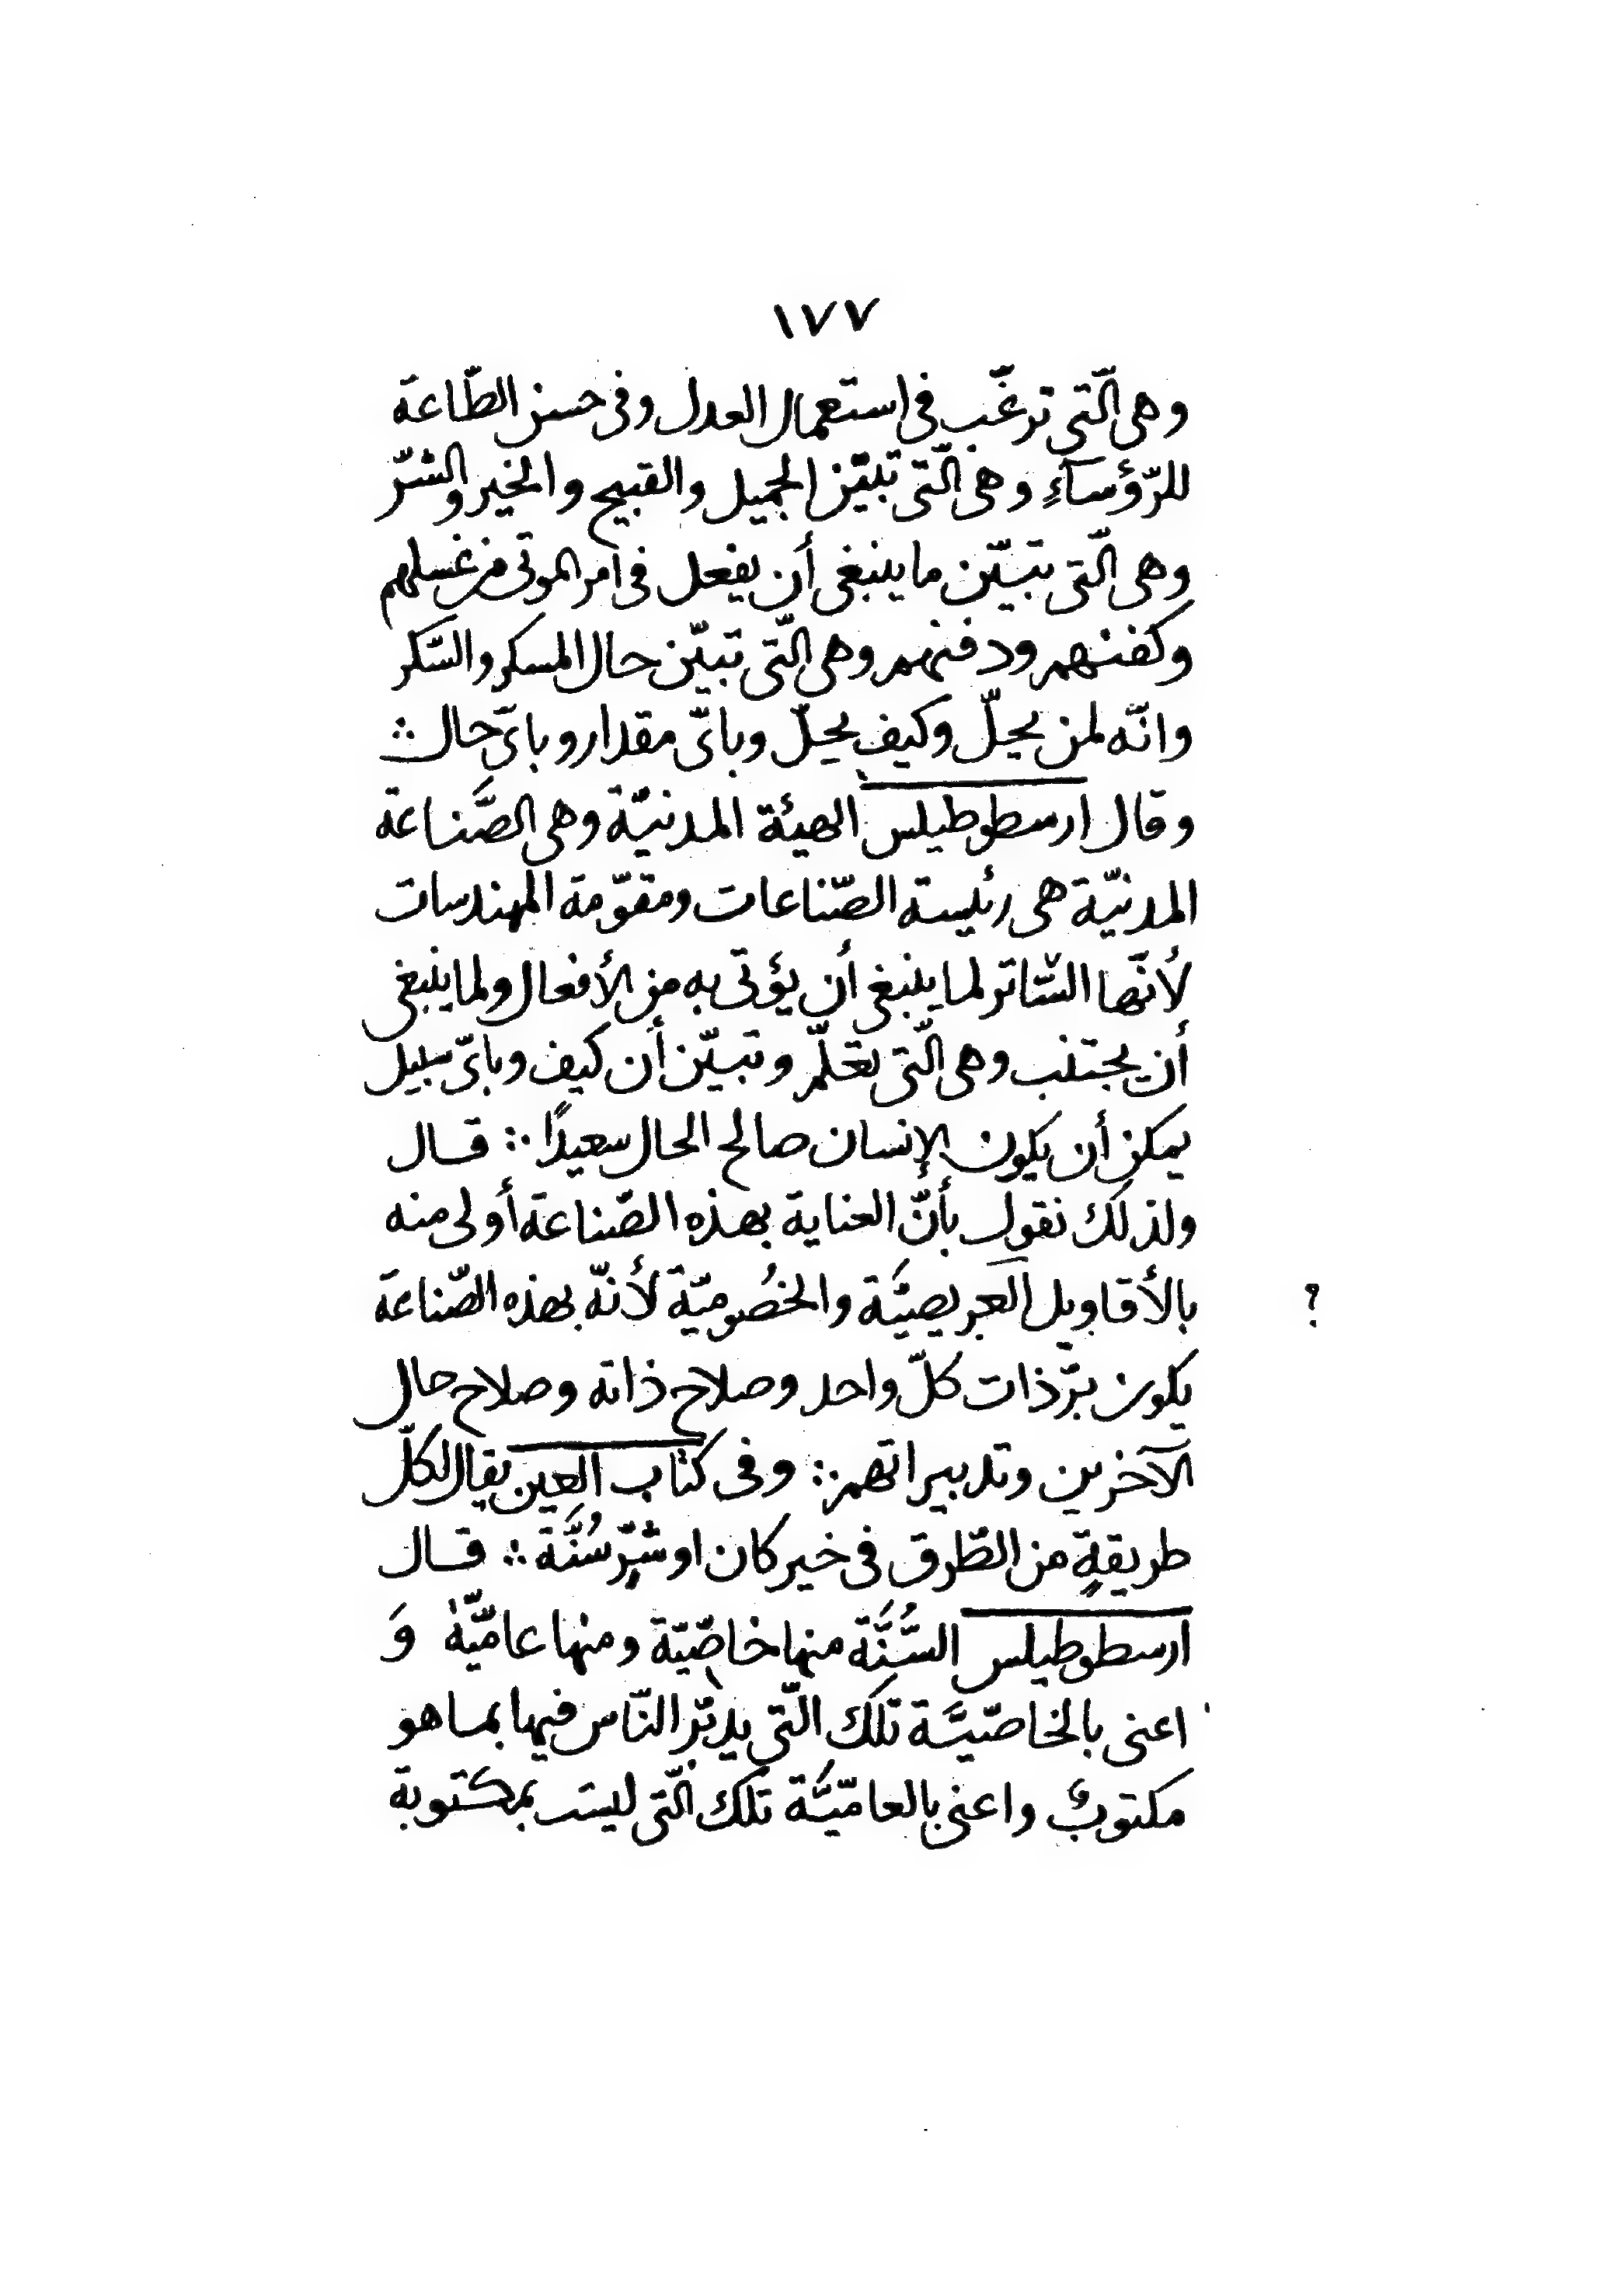 ١٧٧
وهى الّتي ترغّب في استعمال العدل وفى حسن الطّاعة
للرّؤسآءِ وهى الّتى تبيّن الجميل والقبيح والخير والشّرّ
وهى الّتى تبيّن ما ينبغى أن يفعل فى أمر الموتى من غسلهم
وكفنهم ودفنهم وهى الّتى تبيّن حال المسكر والسّكر
وانّه لمن يحلّ وكيف يحلّ وبأىّ مقدار وبأىّ حال ∴
وقال ارسطوطيلس الهيئة المدنيّة وهى الصَّناعة
المدنيّة هى رئيسة الصّناعات ومقوّمة المهندسات
لأنّها السّاتر لما ينبغى أن يؤتى به من الأفعال ولما ينبغى
أن يجتنب وهى الّتى تعلّم وتبيّن أن كيف وبأىّ سبيل
يمكن أن يكون الإنسان صالح الحال سعيدًا ∴ قال
ولذلك نقول بأنّ العناية بهذه الصّناعة أولى منه
بالأقاويل العريصيَّة والخُصوميّة لأنّه بهذه الصّناعة
؟
يكون برّ ذات كلّ واحد وصلاح ذاته وصلاح حال
الآخرين وتدبيراتهم ∴ وفى كتاب العين يقال لكلّ
طريقةٍ من الطّرق فى خير كان او شرٍّ سُنَّة ∴ قال
ارسطوطيلس السُّنَّة منها خاصّيّة ومنها عاميّة وَ
اعنى بالخاصّيَّة تلك الّتي يدبّر النّاس فيها بما هو
مكتوبٌ واعنى بالعامّيَّة تلك الّتى ليست بمكتوبة